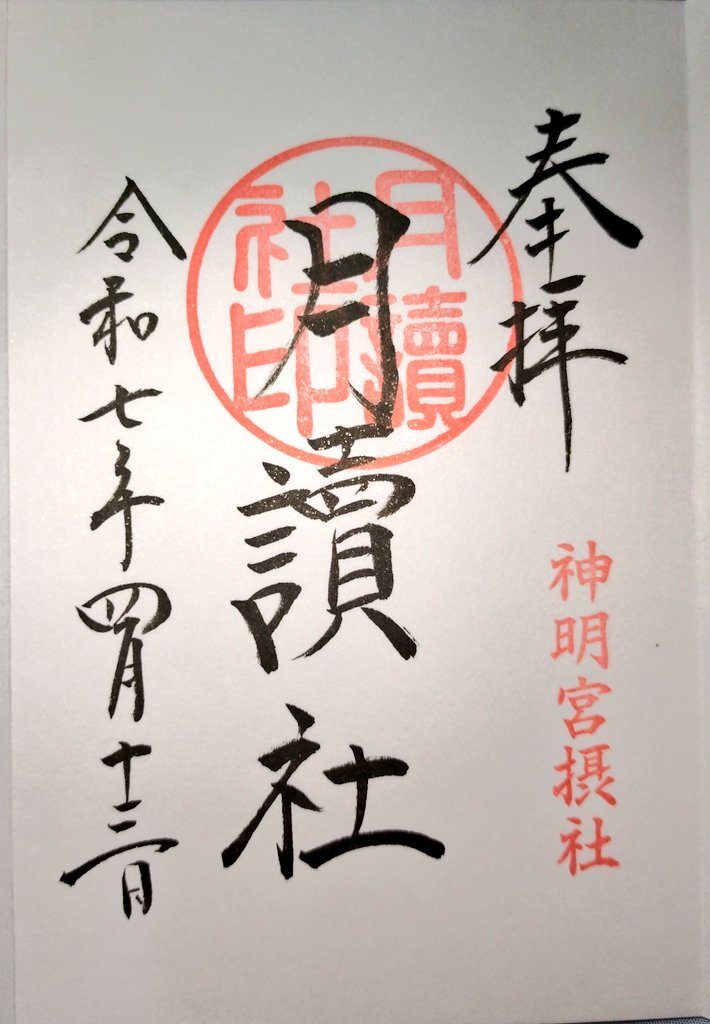 奉拝
神明宮摂社
月讀社
月讀社印
令和七年四月十三日